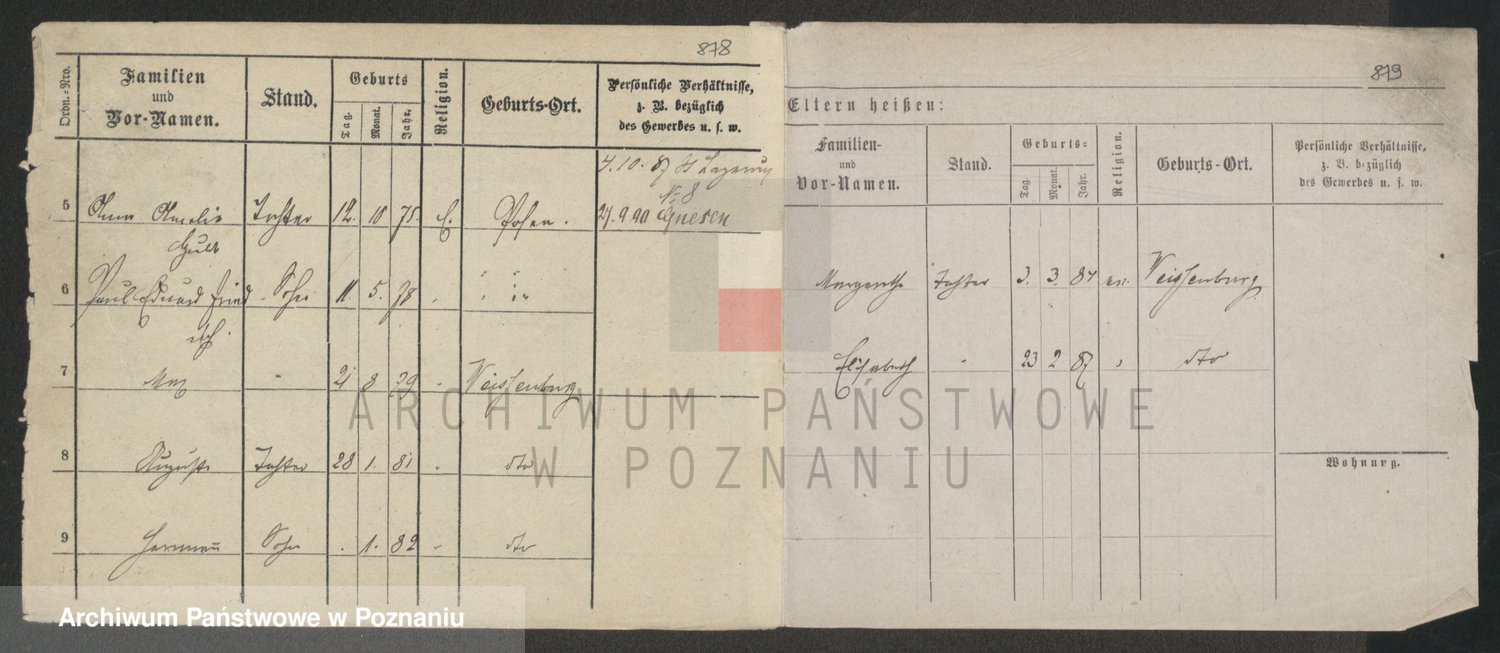 878
Ordn.-Nro.
Familien
und
Vor-Namen.
Stand.
Geburts
Tag.
Monat.
Jahr.
Religion.
Geburts-Ort.
Persönliche Verhältnisse,
z. B. bezüglich
des Gewerbes u. s. w.
4.10.87 St Lazarus
No 8
5 Anna Amalie Tochter 12. 10 75. E. Posen. 27.9.90 Gnesen
6 Paul Eduard Fried Sohn 11. 5. 78
rich
7 Max " 21 8 79 Weissenburg
8 Auguste Tochter 28 1. 81 dto
9 Herrmann Sohn . 1. 82 dto
879
Eltern heißen:
Familien-
und
Vor-Namen.
Stand.
Geburts-
Tag.
Monat.
Jahr.
Religion.
Geburts-Ort.
Persönliche Verhältnisse,
z. B. bezüglich
des Gewerbes u. s. w.
Margarethe Tochter 3. 3. 84 ev. Weissenburg
Elisabeth " 23 2 87 " dto
Wohnung.
ARCHIWUM PAŃSTWOWE
W POZNANIU
Archiwum Państwowe w Poznaniu